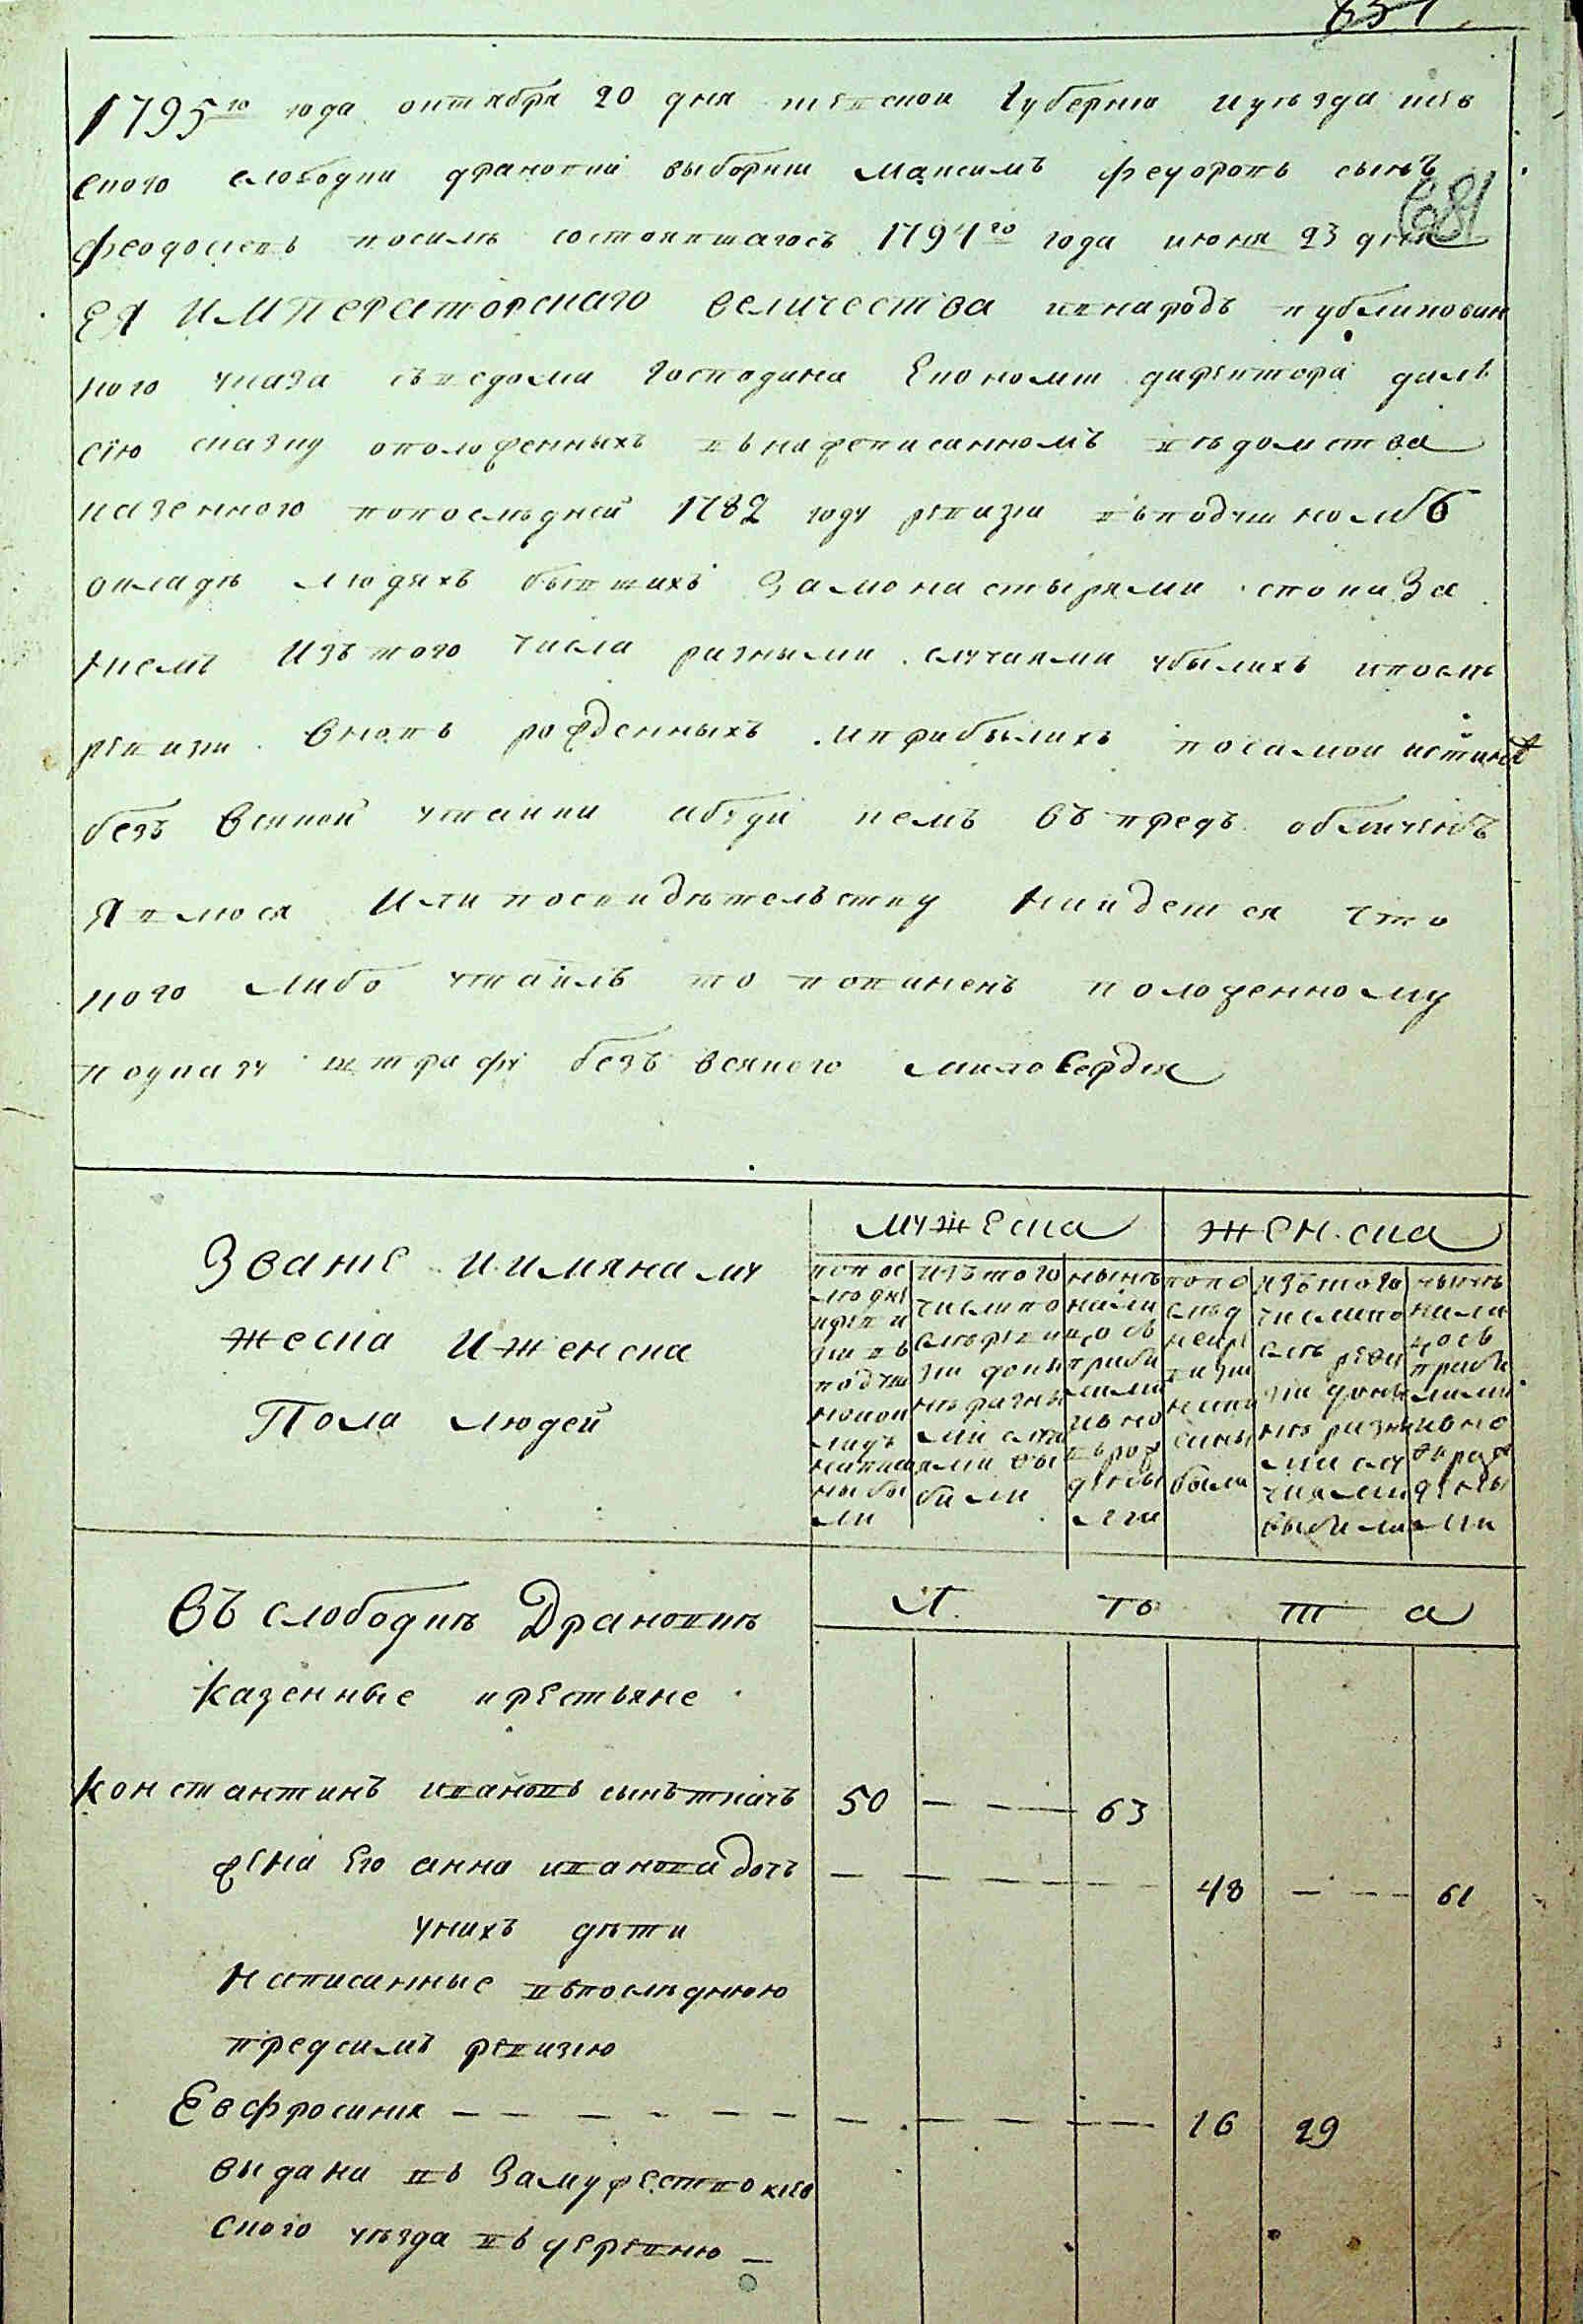 1795го года октября 20 дня киевской губернии иуезда киев
ского слободки драновки выборни максимъ федоровъ сынъ
феодосиевъ посилѣ состоявшагося 1794го года июня 23 дня
ЕЯ ИМПЕРАТОРСКАГО величества ивнародъ публикован
ного указа съведома господина Економии директора далъ
сїю сказку оположенныхъ въневписанномъ вѣдомства
казенного попоследней 1782 году ревизии въподушномъ
окладѣ людяхъ бывшихъ замонастырями споказа
ниемъ изътого числа разными случаями убылихъ ипослѣ
ревизии вновь рожденныхъ иприбылихъ посамой истинѣ
безъ всякой утайки абуди кемъ въпредъ обличенъ
явлюся или посвидѣтельству найдется что
кого либо утаилъ то повиненъ положенному
поуказу штрафу безъ всякого милосердия
мужеска женска
Звание иимяна му
жеска иженска
Пола людей
попос
ледней
ревѣ
зии въ
подуш
номок
ладѣ
написа
ны бы
ли
изътого
числа по
слѣревѣ
зии доны
нѣ разны
ми случа
ями вы
были
нынѣ
нали
цо съ
прибы
лыми
ивно
въ рож
денны
ми
попо
слѣд
ней ре
визии
напи
саны
было
изътого
числа по
слѣ реви
зии доны
нѣ разны
ми слу
чаями
выбыли
нынѣ
нали
цо съ
прибы
лыми
ивно
въ рож
денны
ми
Въ слободкѣ Драновкѣ
Л ѣ т а
Казенные крестьяне
Константинъ ивановъ сынъ ткачъ 50 — — — 63
жена его анна иванова дочъ — — — — — 48 — — — 61
унихъ дѣти
написанные въпоследнюю
предсимъ ревизию
Евфросиния — — — — — — — — — — 16 29
выдана въ замужество киев
ского уѣзда въ деревню —